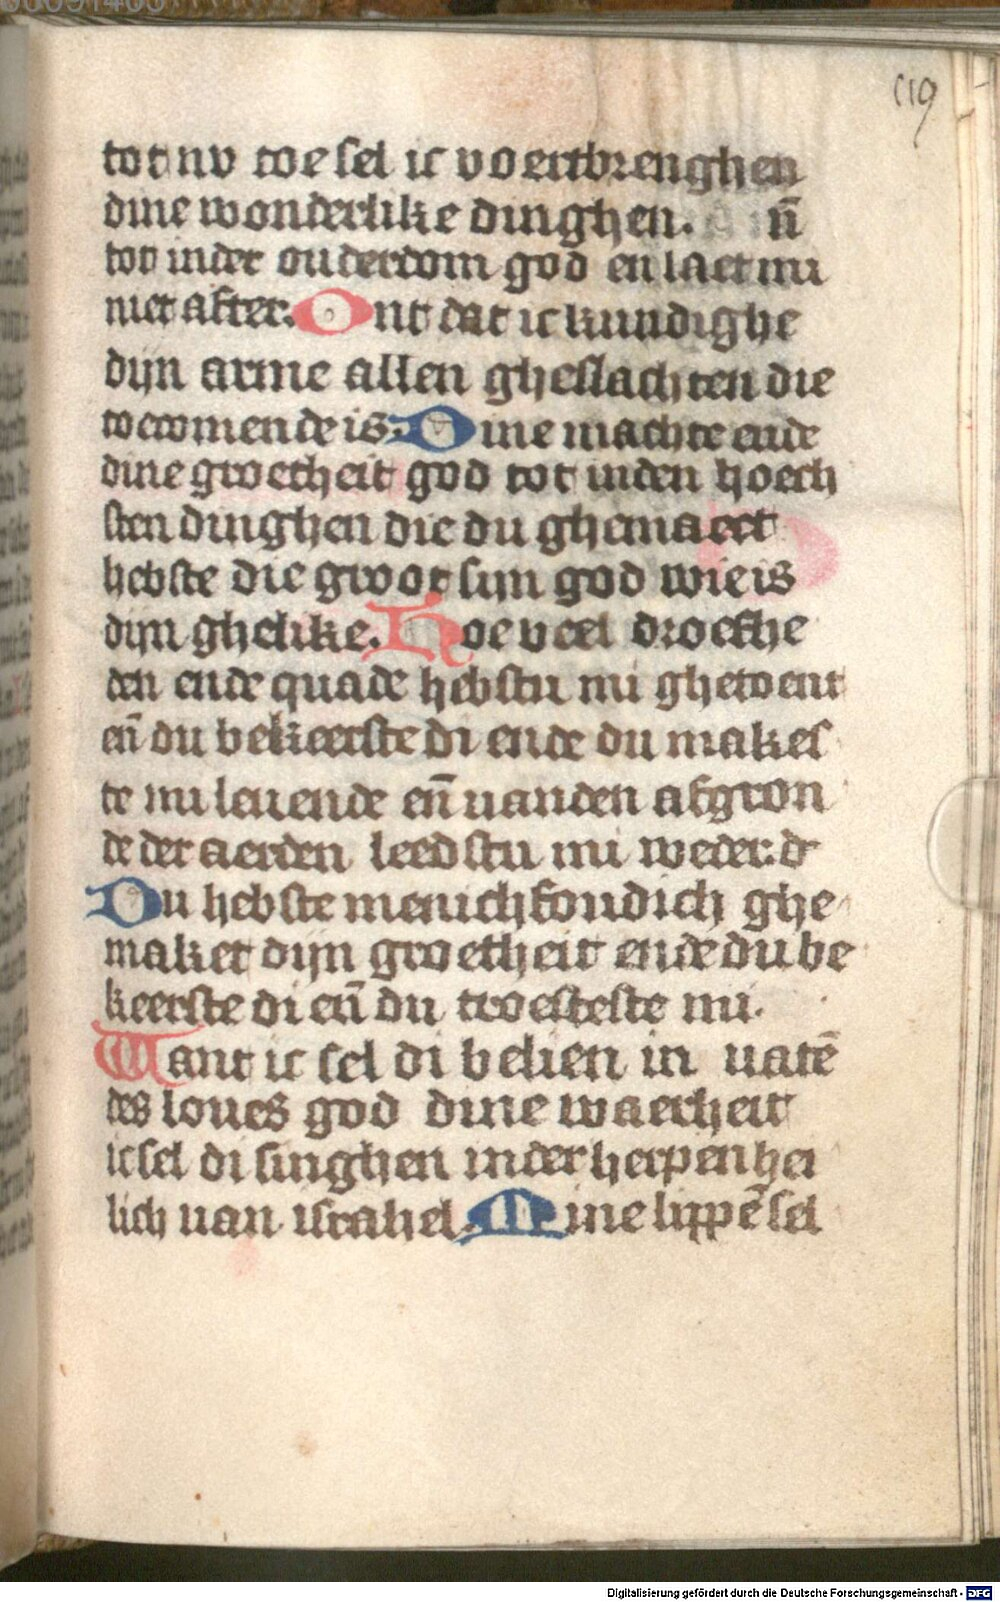 119
tot nv toe sel ic voertbrenghen
dine wonderlike dinghen. eñ
tot inder ouderdom god en laet mi
niet after. Ont dat ic kundighe
dijn arme allen gheslachten die
toecomende is. Dine machte ende
dine groetheit god tot inden hoech
sten dinghen die du ghemaect
hebste die groot sijn god wie is
dijn ghelike. Hoe veel droefhe
den ende quade hebstu mi ghetoent
eñ du bekeerste di ende du makes
te mi leuende eñ uanden afgron
de der aerden leedstu mi weder.
Du hebste menichfoudich ghe
maket dijn groetheit ende du be
keerste di eñ du troesteste mi.
Want ic sel di belien in uatē
des loues god dine waerheit
ic sel di singhen inder herpen hei
lich uan israhel. Mine lippē sel
Digitalisierung gefördert durch die Deutsche Forschungsgemeinschaft - DFG